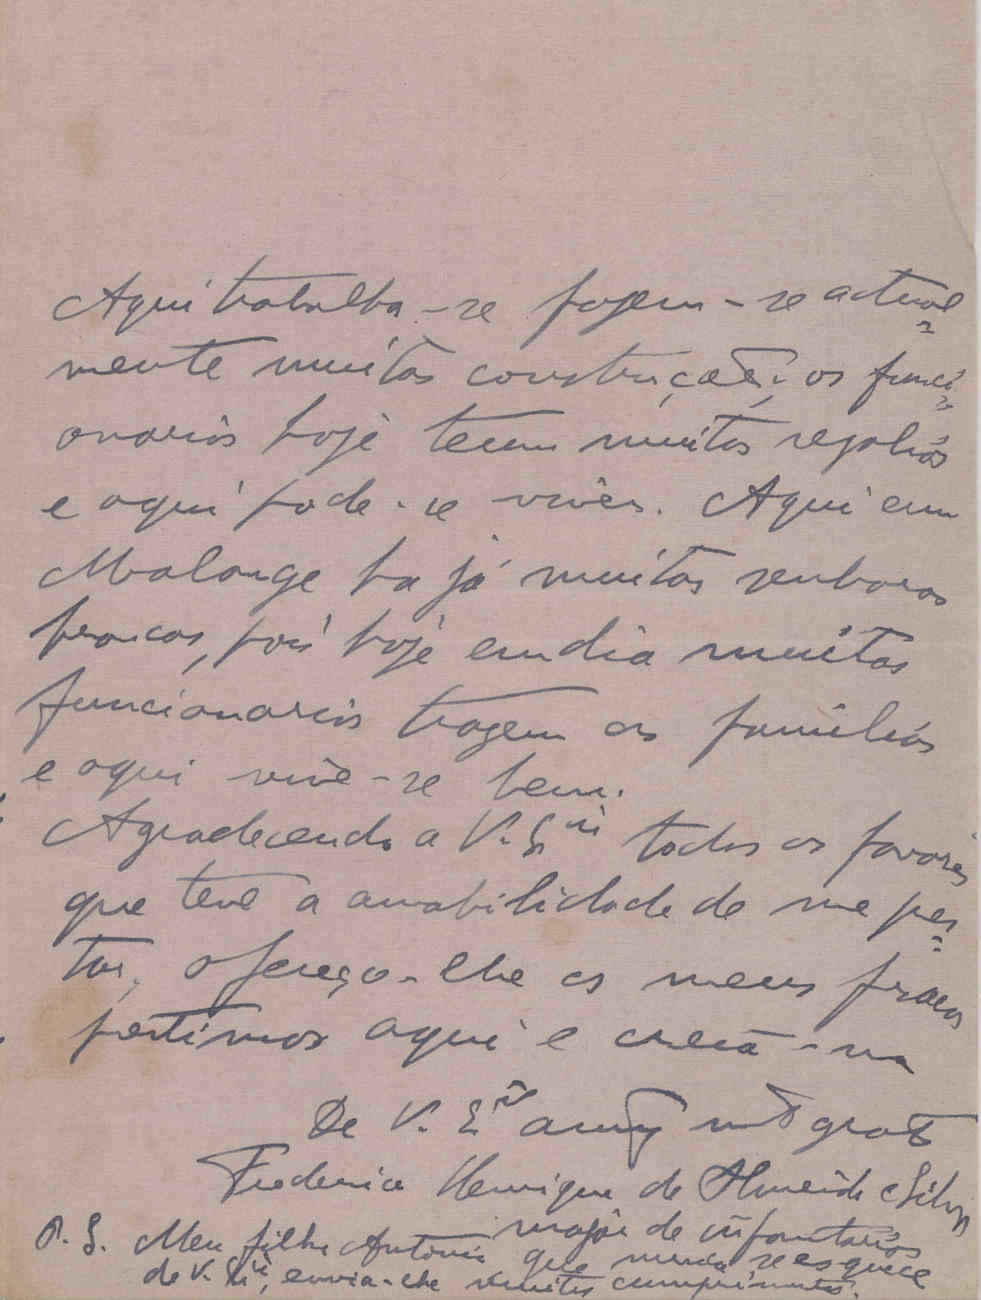 Aqui trabalha-se fazem-se actual=
mente muitas construções; os funci=
onarios hoje teem muitas regalias
e aqui pode-se viver. Aqui em
Malange ha já muitas senhoras
brancas, pois hoje em dia muitos
funcionarios trazem as familias
e aqui vive-se bem.
Agradecendo a V. Ex.ia todos os favores
que teve a amabilidade de me pres=
tar, ofereço-lhe os meus fracos
prestimos aqui e creia-me
De V. Ex.ia amg. mto grato
Frederico Henrique de Almeida e Silva
major de infantaria
P.S. Meu filho Antonio que nunca se esquece
de V. Ex.ia, envia-lhe muitos cumprimentos.